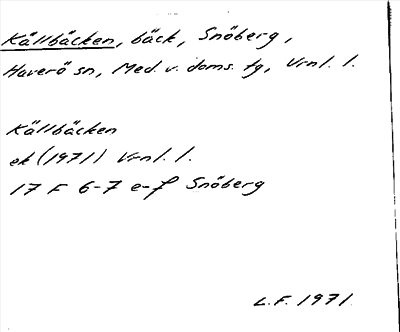 Källbäcken, bäck, Snöberg,
Haverö sn, Med. v. doms. tg, Vrnl. l.
Källbäcken
ek (1971) Vrnl. l.
17 F 6-7 e-f Snöberg
L.F. 1971